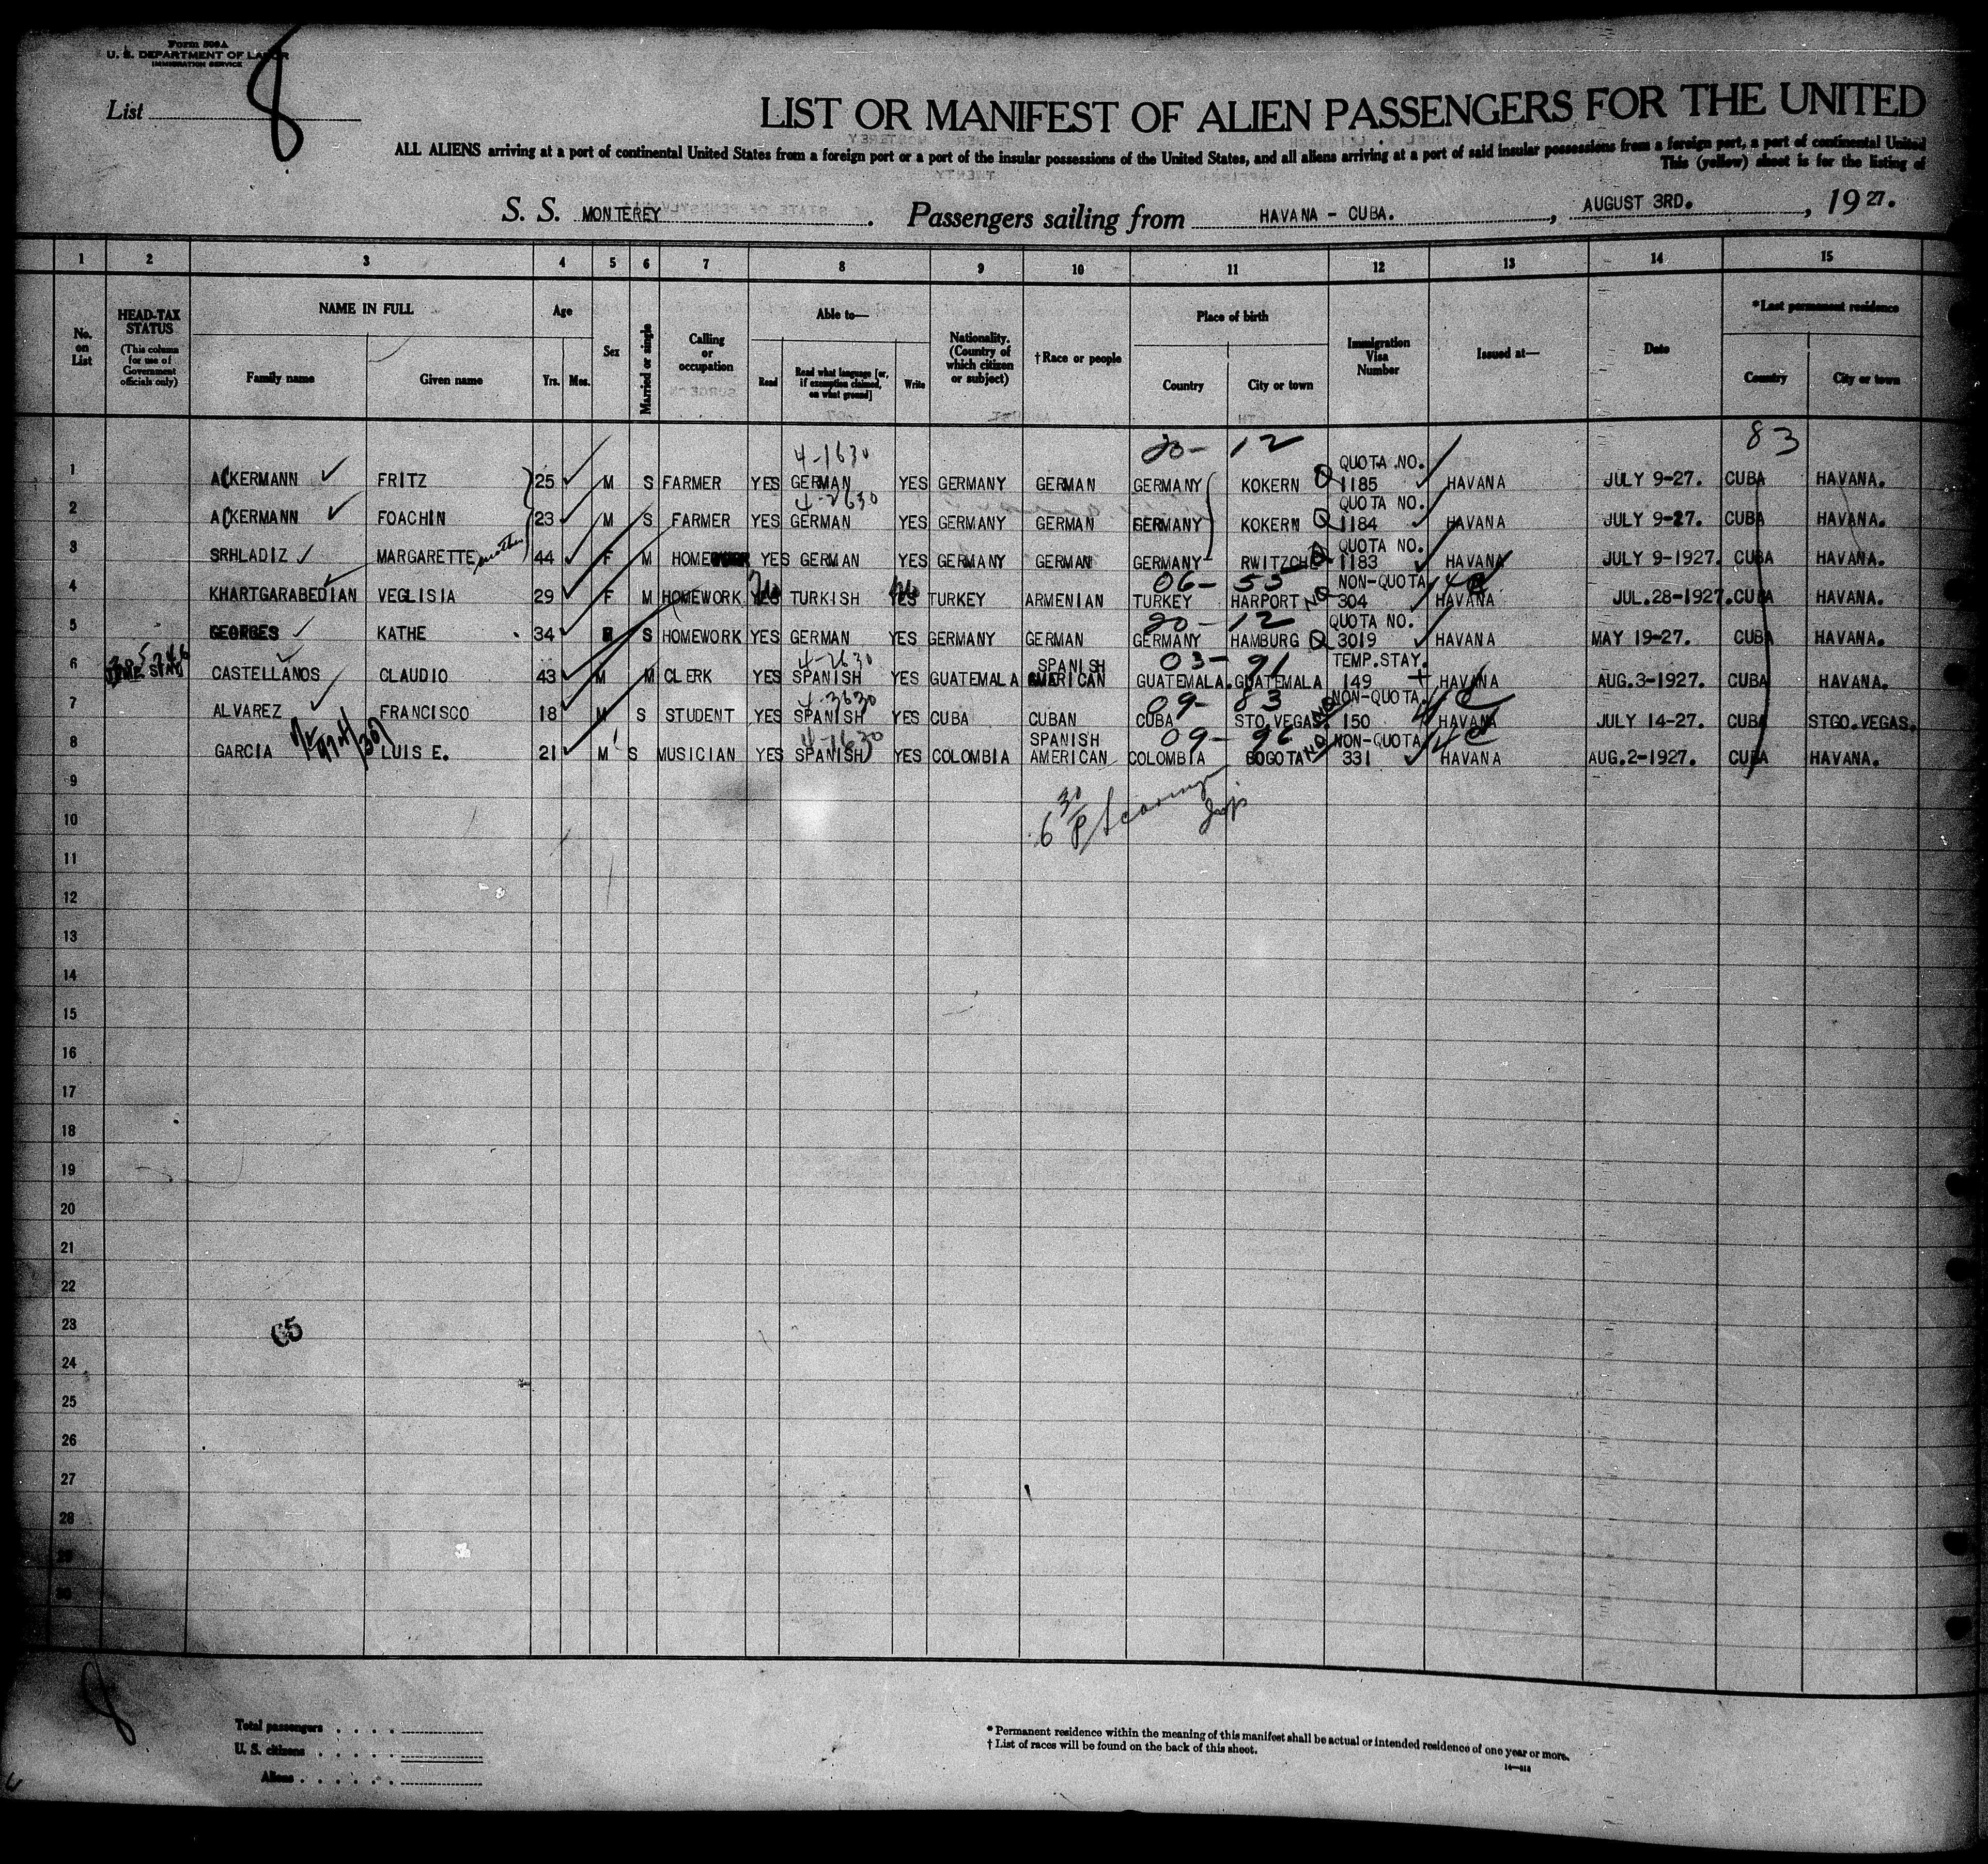 Form 500A
U. S. DEPARTMENT OF LABOR
IMMIGRATION SERVICE
List 8
LIST OR MANIFEST OF ALIEN PASSENGERS FOR THE UNITED
ALL ALIENS arriving at a port of continental United States from a foreign port or a port of the insular possessions of the United States, and all aliens arriving at a port of said insular possessions from a foreign port, a port of continental United
This (yellow) sheet is for the listing of
S. S. MONTEREY. Passengers sailing from HAVANA - CUBA., AUGUST 3RD., 19 27.
1 2 3 4 5 6 7 8 9 10 11 12 13 14 15
No. on List
HEAD-TAX STATUS (This column for use of Government officials only)
NAME IN FULL
Family name Given name
Age
Yrs. Mos.
Sex
Married or single
Calling or occupation
Able to—
Read Read what language [or, if exemption claimed, on what ground] Write
Nationality. (Country of which citizen or subject)
†Race or people
Place of birth
Country City or town
Immigration Visa Number
Issued at—
Date
*Last permanent residence
Country City or town
4-1630 20- 12 QUOTA NO. 83
1 ACKERMANN FRITZ 25 M S FARMER YES GERMAN YES GERMANY GERMAN GERMANY KOKERN Q 1185 HAVANA JULY 9-27. CUBA HAVANA.
4-2630 QUOTA NO.
2 ACKERMANN FOACHIN 23 M S FARMER YES GERMAN YES GERMANY GERMAN GERMANY KOKERN Q 1184 HAVANA JULY 9-27. CUBA HAVANA.
QUOTA NO.
3 SRHLADIZ MARGARETTE mother 44 F M HOME YES GERMAN YES GERMANY GERMAN GERMANY RWITZCHE 1183 HAVANA JULY 9-1927. CUBA HAVANA.
06- 55 NON-QUOTA
4 KHARTGARABEDIAN VEGLISIA 29 F M HOMEWORK YES TURKISH YES TURKEY ARMENIAN TURKEY HARPORT NQ 304 HAVANA JUL.28-1927. CUBA HAVANA.
20- 12 QUOTA NO.
5 GEORGES KATHE 34 S HOMEWORK YES GERMAN YES GERMANY GERMAN GERMANY HAMBURG Q 3019 HAVANA MAY 19-27. CUBA HAVANA.
4-2630 SPANISH 03- 91 TEMP.STAY.
6 CASTELLANOS CLAUDIO 43 M M CLERK YES SPANISH YES GUATEMALA AMERICAN GUATEMALA. GUATEMALA 149 HAVANA AUG.3-1927. CUBA HAVANA.
4-3630 09- 83 NON-QUOTA 4C
7 ALVAREZ FRANCISCO 18 M S STUDENT YES SPANISH YES CUBA CUBAN CUBA STO.VEGAS. 150 HAVANA JULY 14-27. CUBA STGO.VEGAS.
4-1630 SPANISH 09- 96 NON-QUOTA 4C
8 GARCIA LUIS E. 21 M S MUSICIAN YES SPANISH YES COLOMBIA AMERICAN COLOMBIA BOGOTA NQ 331 HAVANA AUG.2-1927. CUBA HAVANA.
9
10
11
12
13
14
15
16
17
18
19
20
21
22
23
65
24
25
26
27
28
29
30
Total passengers
U. S. citizens
Aliens
* Permanent residence within the meaning of this manifest shall be actual or intended residence of one year or more.
† List of races will be found on the back of this sheet.